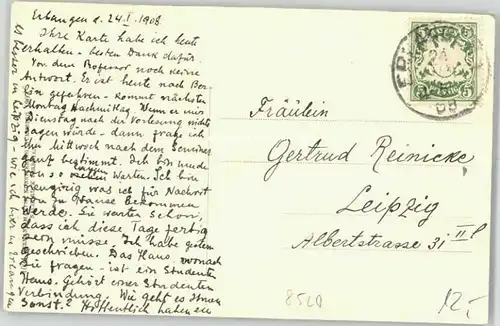 Erlangen d. 24.I.1908
Ihre Karte habe ich heute
erhalten - besten Dank dafür.
Von dem Professor noch keine
Antwort. Er ist heute nach Ber
lin gefahren - kommt nächsten
Montag Nachmittag. Wenn er mir
Dienstag nach der Vorlesung nichts
sagen würde - dann frage ich
ihn Mittwoch nach dem Seminar
ganz bestimmt. Ich bin müde
von so vielen Warten. Ich bin
neugierig was ich für Nachricht
von zu Hause bekommen
werde. Sie warten schon,
dass ich diese Tage fertig
sein müsse. Ich habe gestern
geschrieben. Das Haus wonach
Sie fragen - ist ein Studenten
Haus. Gehört einer Studenten
Verbindung. Wie geht es Ihnen
sonst? Hoffentlich haben es
besser in Leipzig wie ich hier in Erlangen
5 5
ERLANGEN
Fräulein
Gertrud Reinicke
Leipzig
Albertstrasse 31 II
12,-